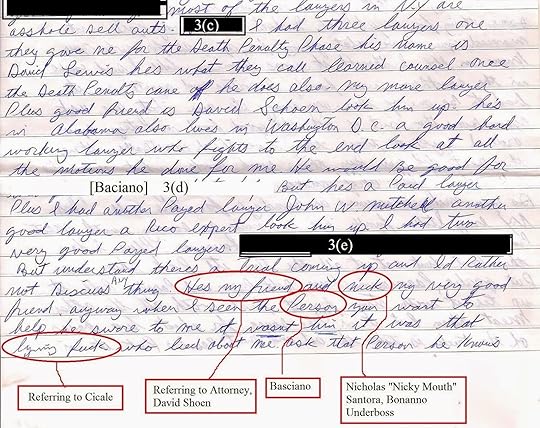 most of the lawyers in N.Y are
asshole sell outs. 3(c) I had three lawyers one
they gave me for the Death Penalty Phase his name is
David Lewis hes what they call learned counsel once
the Death Penalty came off he does also. My more lawyer
Plus good friend is David Schoen look him up. he's
in Alabama also lives in Washington D.C. a good hard
working lawyer who fights to the end look at all
the motions he done for me He would be good for
[Baciano] 3(d) But hes a Paid lawyer
Plus I had another Payed lawyer John W. Mitchell another
good lawyer a Rico expert look him up I had two
very good Payed lawyers 3(e)
But understand theres a trial coming up and I'd Rather
not Discuss Any thing. Hes my friend and nick my very good
friend, anyway when I seen the Person you want to
help he swore to me it wasnt him it was that
lying fuck who lied about me ask that Person he Knows
Referring to Cicale
Referring to Attorney,
David Shoen
Basciano
Nicholas "Nicky Mouth"
Santora, Bonanno
Underboss